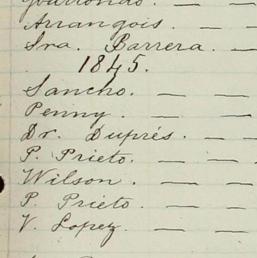 Arrangois. — —
Sra. Barrera. — —
1845.
Sancho. — — —
Penny. — — —
Dr. Duprés. — —
P. Prieto. — — —
Wilson. — — —
P. Prieto. — — —
V. Lopez. — — —